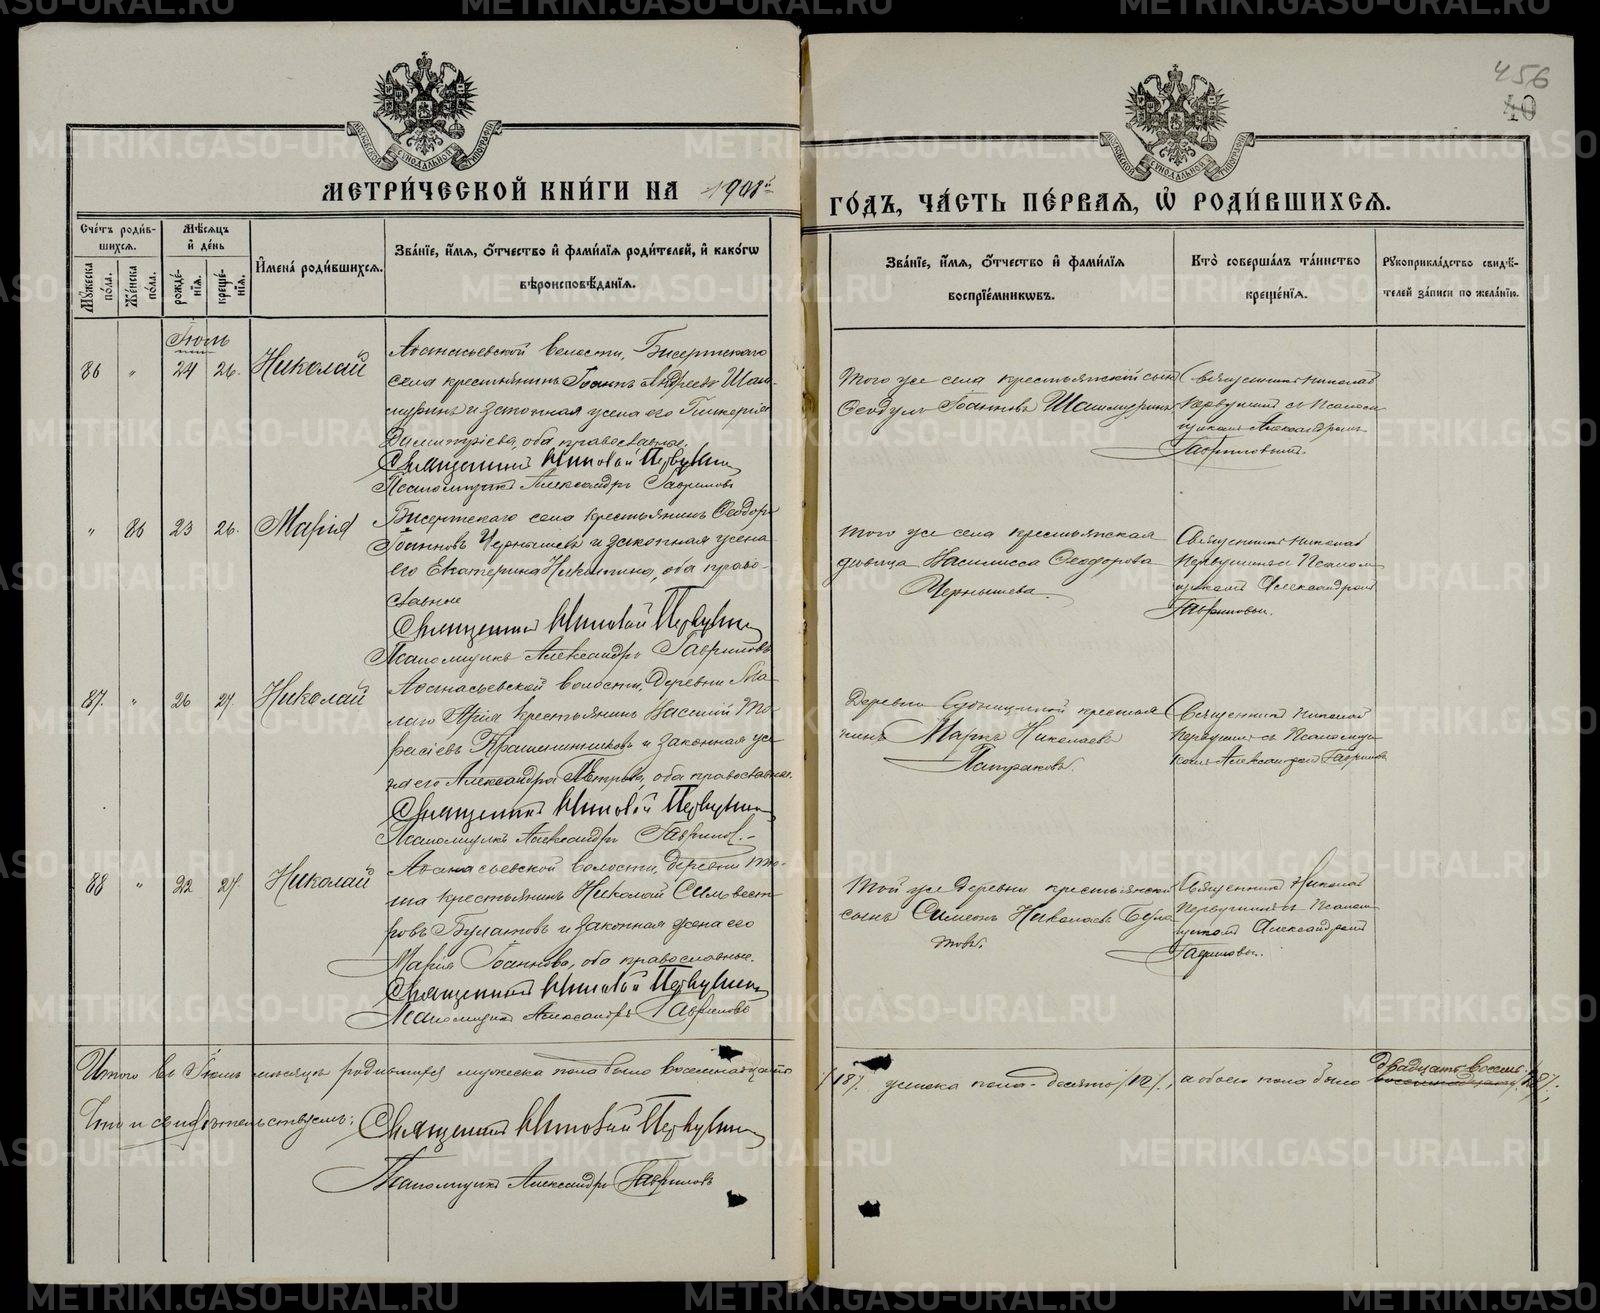 456
40
МОСКОВСКОЙ СѴНОДАЛЬНОЙ ТИПОГРАФІИ
МОСКОВСКОЙ СѴНОДАЛЬНОЙ ТИПОГРАФІИ
МЕТРИ́ЧЕСКОЙ КНИ́ГИ НА 1908й
ГО́ДЪ, ЧА́СТЬ ПЕ́РВАЯ, Ѡ҆ РОДИ́ВШИХСЯ.
Сче́тъ роди́в-
шихся.
Му́жеска по́ла.
Же́нска по́ла.
Мѣ́сяцъ и҆ де́нь
рожде́-
нія.
креще́-
нія.
И҆мена̀ роди́вшихся.
Зва́ніе, и҆́мя, ѻ҆́тчество и҆ фами́лія роди́телей, и҆ како́гѡ
вѣроисповѣ́данія.
Зва́ніе, и҆́мя, ѻ҆́тчество и҆ фами́лія
воспріе́мникѡвъ.
Кто̀ соверша́лъ та́инство
креще́нія.
Рукоприкла́дство свидѣ́-
телей за́писи по жела́нію.
Іюль
86 „ 24 26. Николай
Аѳанасьевской волости, Бисертскаго
села крестьянинъ Іоаннъ Андреевъ Шаш-
муринъ и законная жена его Гликерія
Димитріева, оба православные.
Священникъ Николай Первушинъ
Псаломщикъ Александръ Гавриловъ
Того же села крестьянскій сынъ
Ѳеодулъ Іоанновъ Шашмуринъ
Священникъ Николай
Первушинъ съ Псалом-
щикомъ Александромъ
Гавриловымъ.
„ 86 23 26. Марія
Бисертскаго села крестьянинъ Ѳеодоръ
Іоанновъ Чернышевъ и законная жена
его Екатерина Никитина, оба право-
славные
Священникъ Николай Первушинъ
Псаломщикъ Александръ Гавриловъ
Того же села крестьянская
дѣвица Васиlисса Ѳеодорова
Чернышева.
Священникъ Николай
Первушинъ съ Псалом-
щикомъ Александромъ
Гавриловым.
87. „ 26 27. Николай
Аѳанасьевской волости, деревни Ма-
лаго крестьянинъ Василій Та-
расіевъ Крашенинниковъ и законная же-
на его Александра Петрова, оба православные.
Священникъ Николай Первушинъ
Псаломщикъ Александръ Гаврилов.
Деревни крестья-
нинъ Маркъ Николаевъ
Патраковъ.
Священникъ Николай
Первушинъ съ Псаломщи-
комъ Александромъ Гаврилов
88 „ 22 27. Николай
Аѳанасьевской волости, деревни
крестьянинъ Николай Сильвест-
ровъ Булатовъ и законная жена его
Марія Іоаннова, оба православные.
Священникъ Николай Первушинъ
Псаломщикъ Александръ Гавриловъ
Той же деревни крестьянскій
сынъ Симеонъ Николаевъ Була-
товъ.
Священникъ Николай
Первушинъ съ Псалом-
щикомъ Александромъ
Гавриловым.
Итого въ Іюлѣ мѣсяцѣ родившихся мужеска пола было восемнадцать /18/. женска пола - десять /10/, а обоего пола было двадцать восемь /28/.
Что и свидѣтельствуемъ:
Священникъ Николай Первушинъ
Псаломщикъ Александръ Гавриловъ